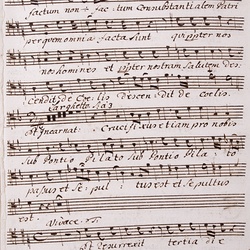 factum non fac tum Consubstantialem Patri
per quem omnia facta sunt qui propter nos
nos homines et propter nostram salutem des
cendit de Coelis descendit de coelis
Larghetto
et Incarnat: Crucifixus etiam pro nobis
sub Pontio Pilato sub Pontio Pila to
passus et se pul tus est et sepultus
est. Vivace
et resurrexit tertia die